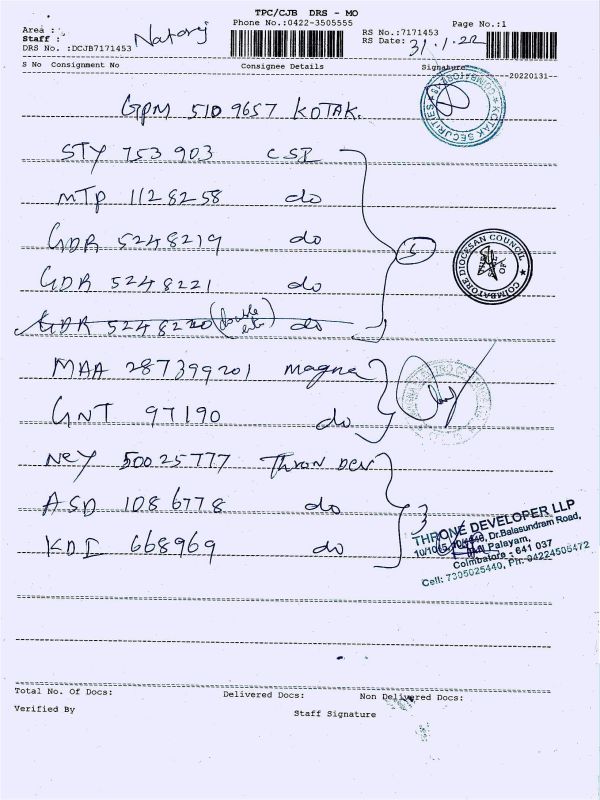 TPC/CJB DRS - MO
Phone No.:0422-3505555
Page No.:1
Area :
Staff :
Nataraj
DRS No. :DCJB7171453
RS No.:7171453
RS Date: 31.1.22
S No Consignment No Consignee Details Signature
20220131
GPM 510 9657 KOTAK.
KOTAK SECURITIES
COIMBATORE
STY 753 903 CSI
MTP 1128258 do
GDR 5248219 do
COIMBATORE DIOCESAN COUNCIL
GDR 5248221 do
GDR 5248220 (double do
MAA 287399201 magna
GNT 97190 do
NEY 50025777 Thron Dev
ASD 1086778 do
3
KDI 668969 do
THRONE DEVELOPER LLP
Dr.Balasundram Road,
Palayam,
Coimbatore : 641 037
Cell: 7305025440, Ph: 04224506472
Total No. Of Docs: Delivered Docs: Non Delivered Docs:
Verified By Staff Signature